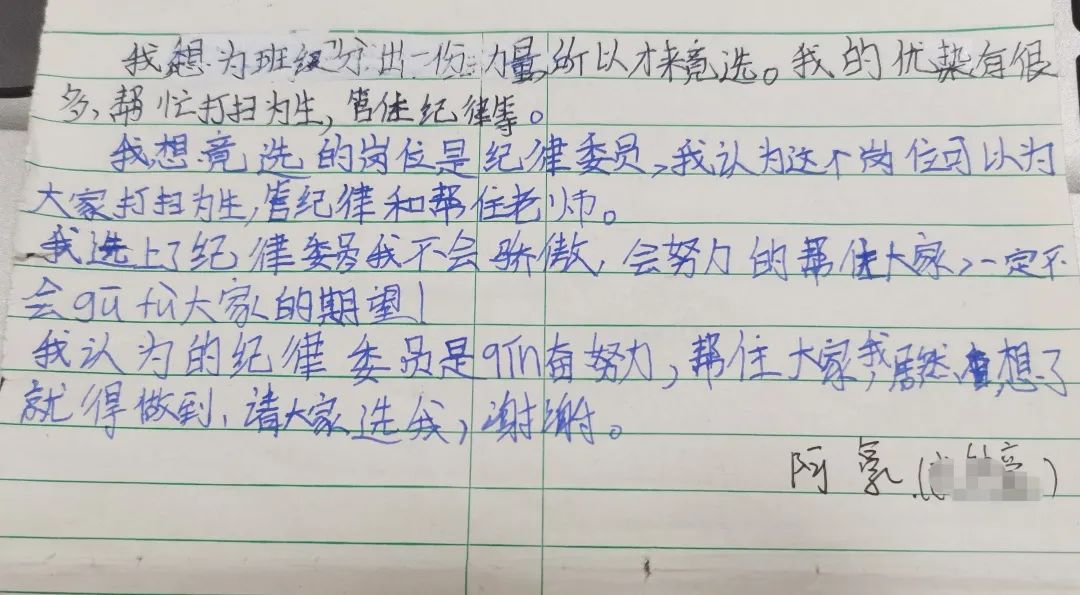 我想为班级分出一份力量所以才来竟选。我的优染有很
多、帮忙打扫为生，管住纪律等。
我想竟选的岗位是纪律委员，我认为这个岗位可以为
大家打扫为生，管纪律和帮住老师。
我选上了纪律委员我不会骄傲，会努力的帮住大家，一定不
会gū fù大家的期望！
我认为的纪律委员是qín奋努力，帮住大家，我居然想了
就得做到，请大家选我，谢谢。
阿氡